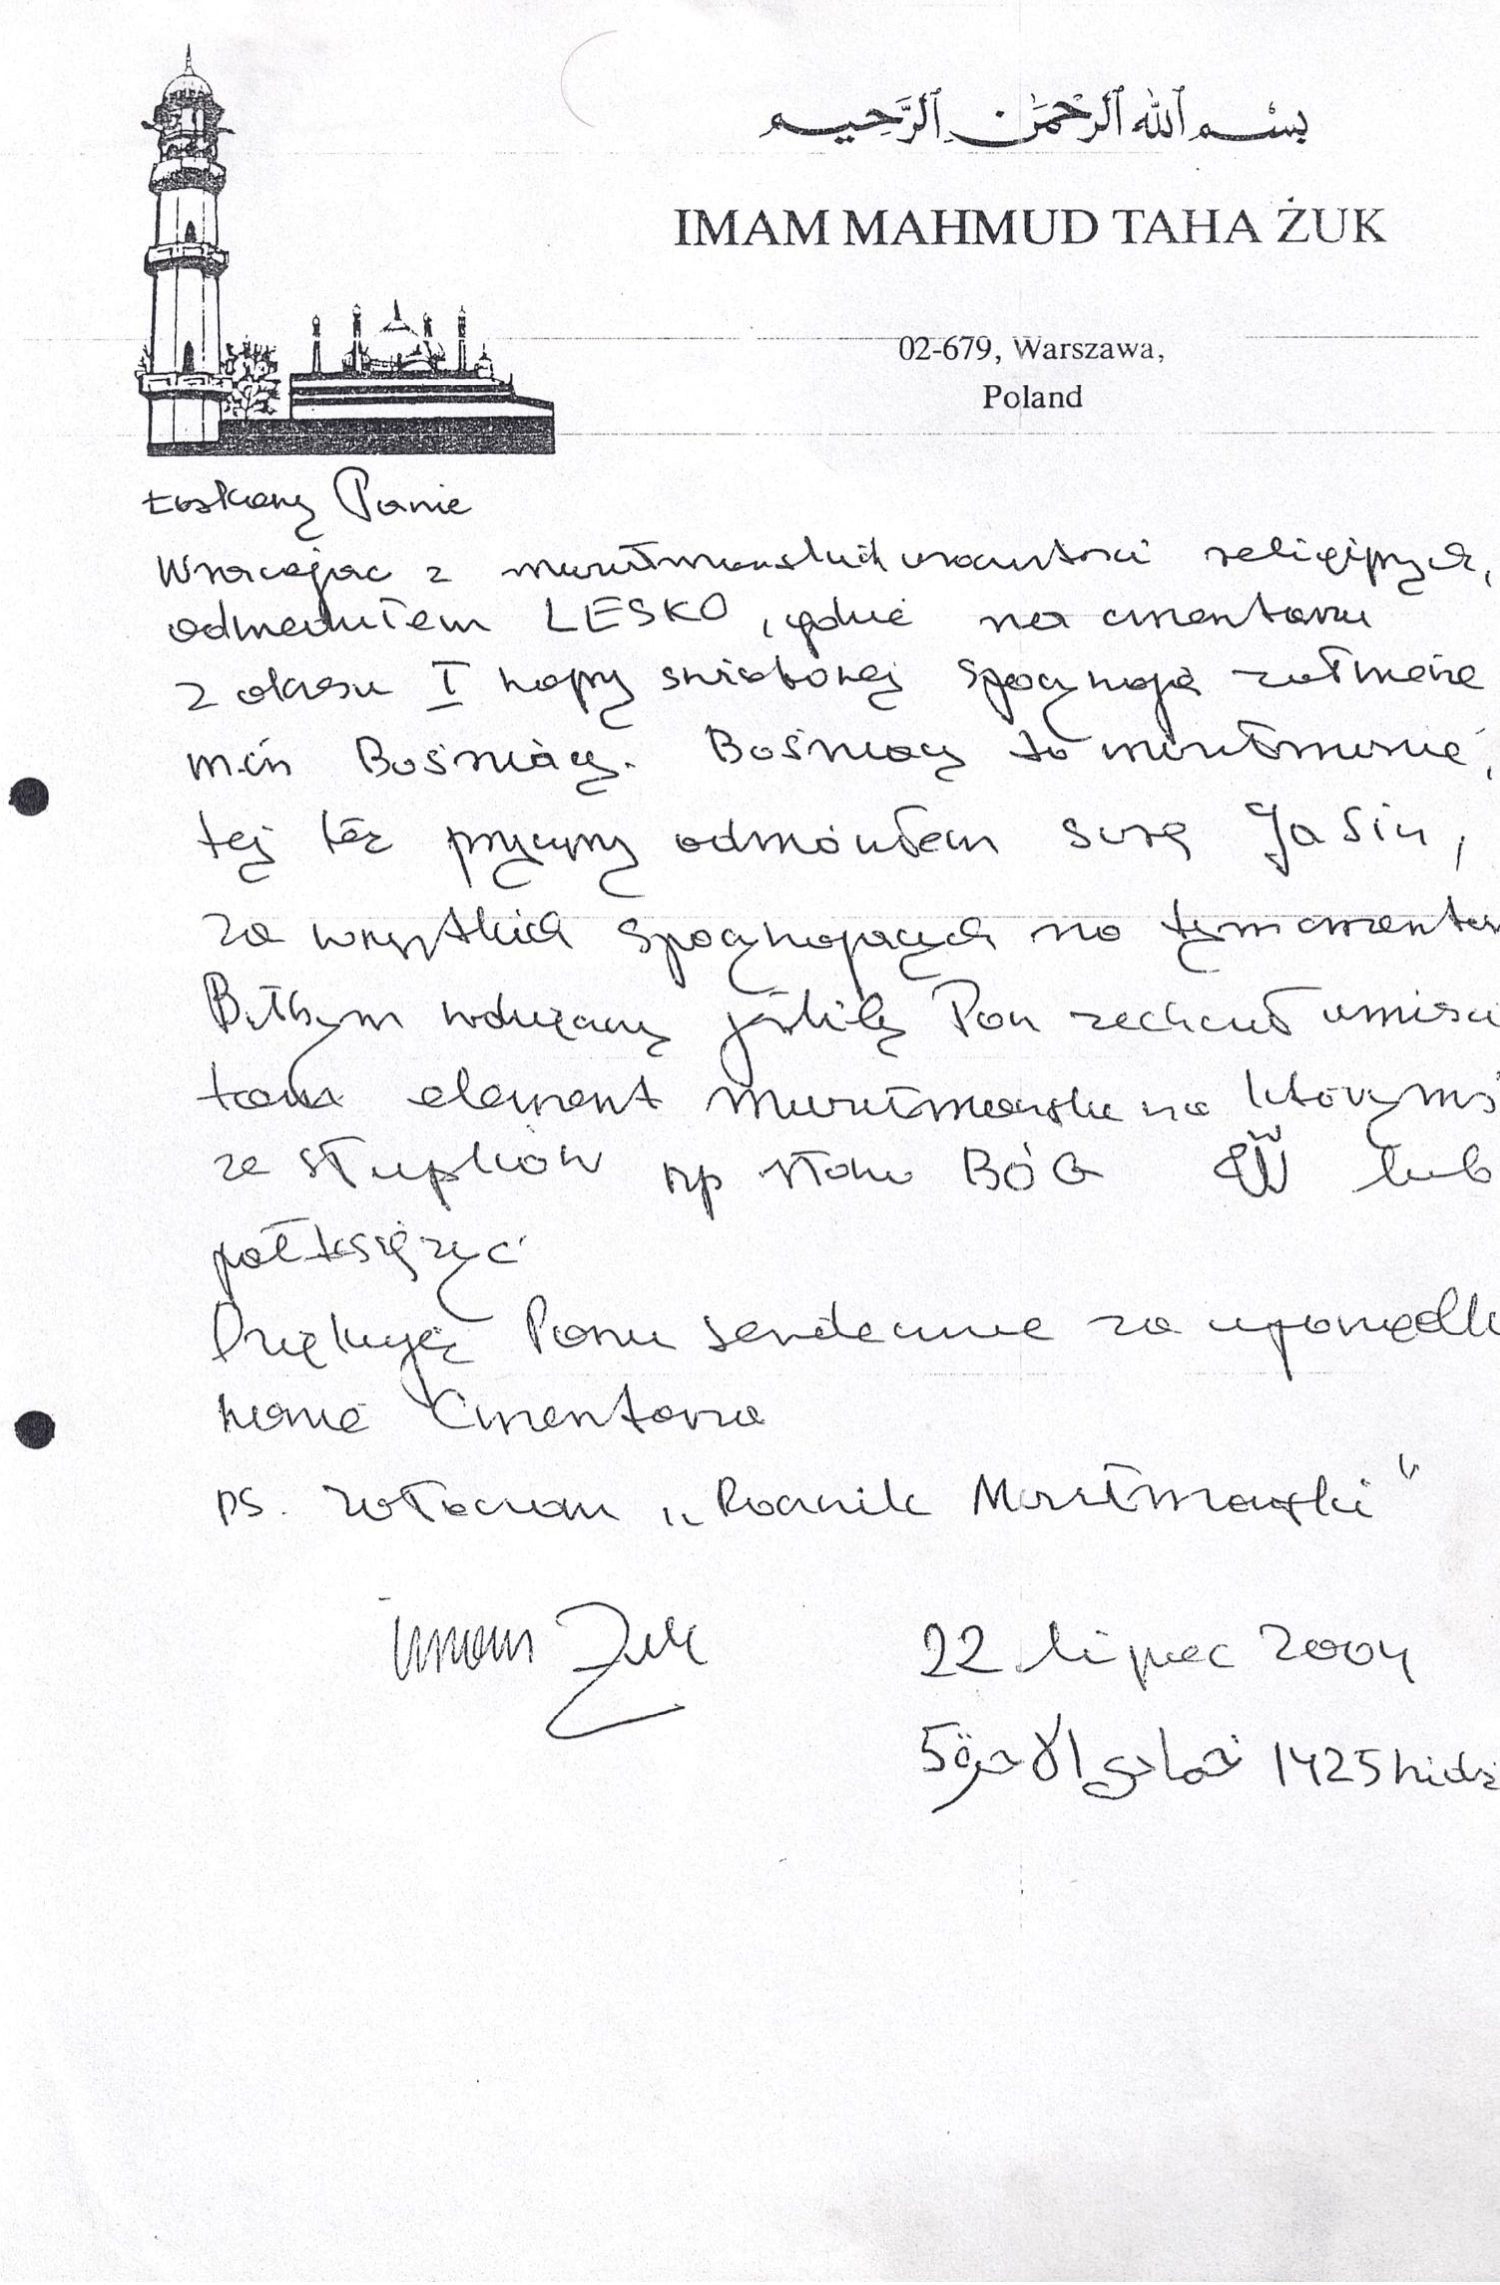 بسم الله الرحمن الرحيم
IMAM MAHMUD TAHA ŻUK
02-679, Warszawa,
Poland
Łaskawy Panie
Wracając z muzułmańskich uroczystości religijnych,
odwiedziłem LESKO, gdzie na cmentarzu
z okresu I wojny światowej spoczywają żołnierze
m.in Bośniacy. Bośniacy to muzułmanie,
tej też przyczyny odmówiłem surę Ja Sin,
za wszystkich spoczywających na tym cmentarz
Byłbym wdzięczny jeśliby Pan zechciał umieści
tam element muzułmański na którymś
ze słupków np słowo BÓG الله lub
półksiężyc
Dziękuję Panu serdecznie za uporządko
wanie Cmentarza
ps. załaczam „Rocznik Muzułmański"
imam Żuk
22 lipiec 2004
5 جمادى الاخرة 1425 hidż